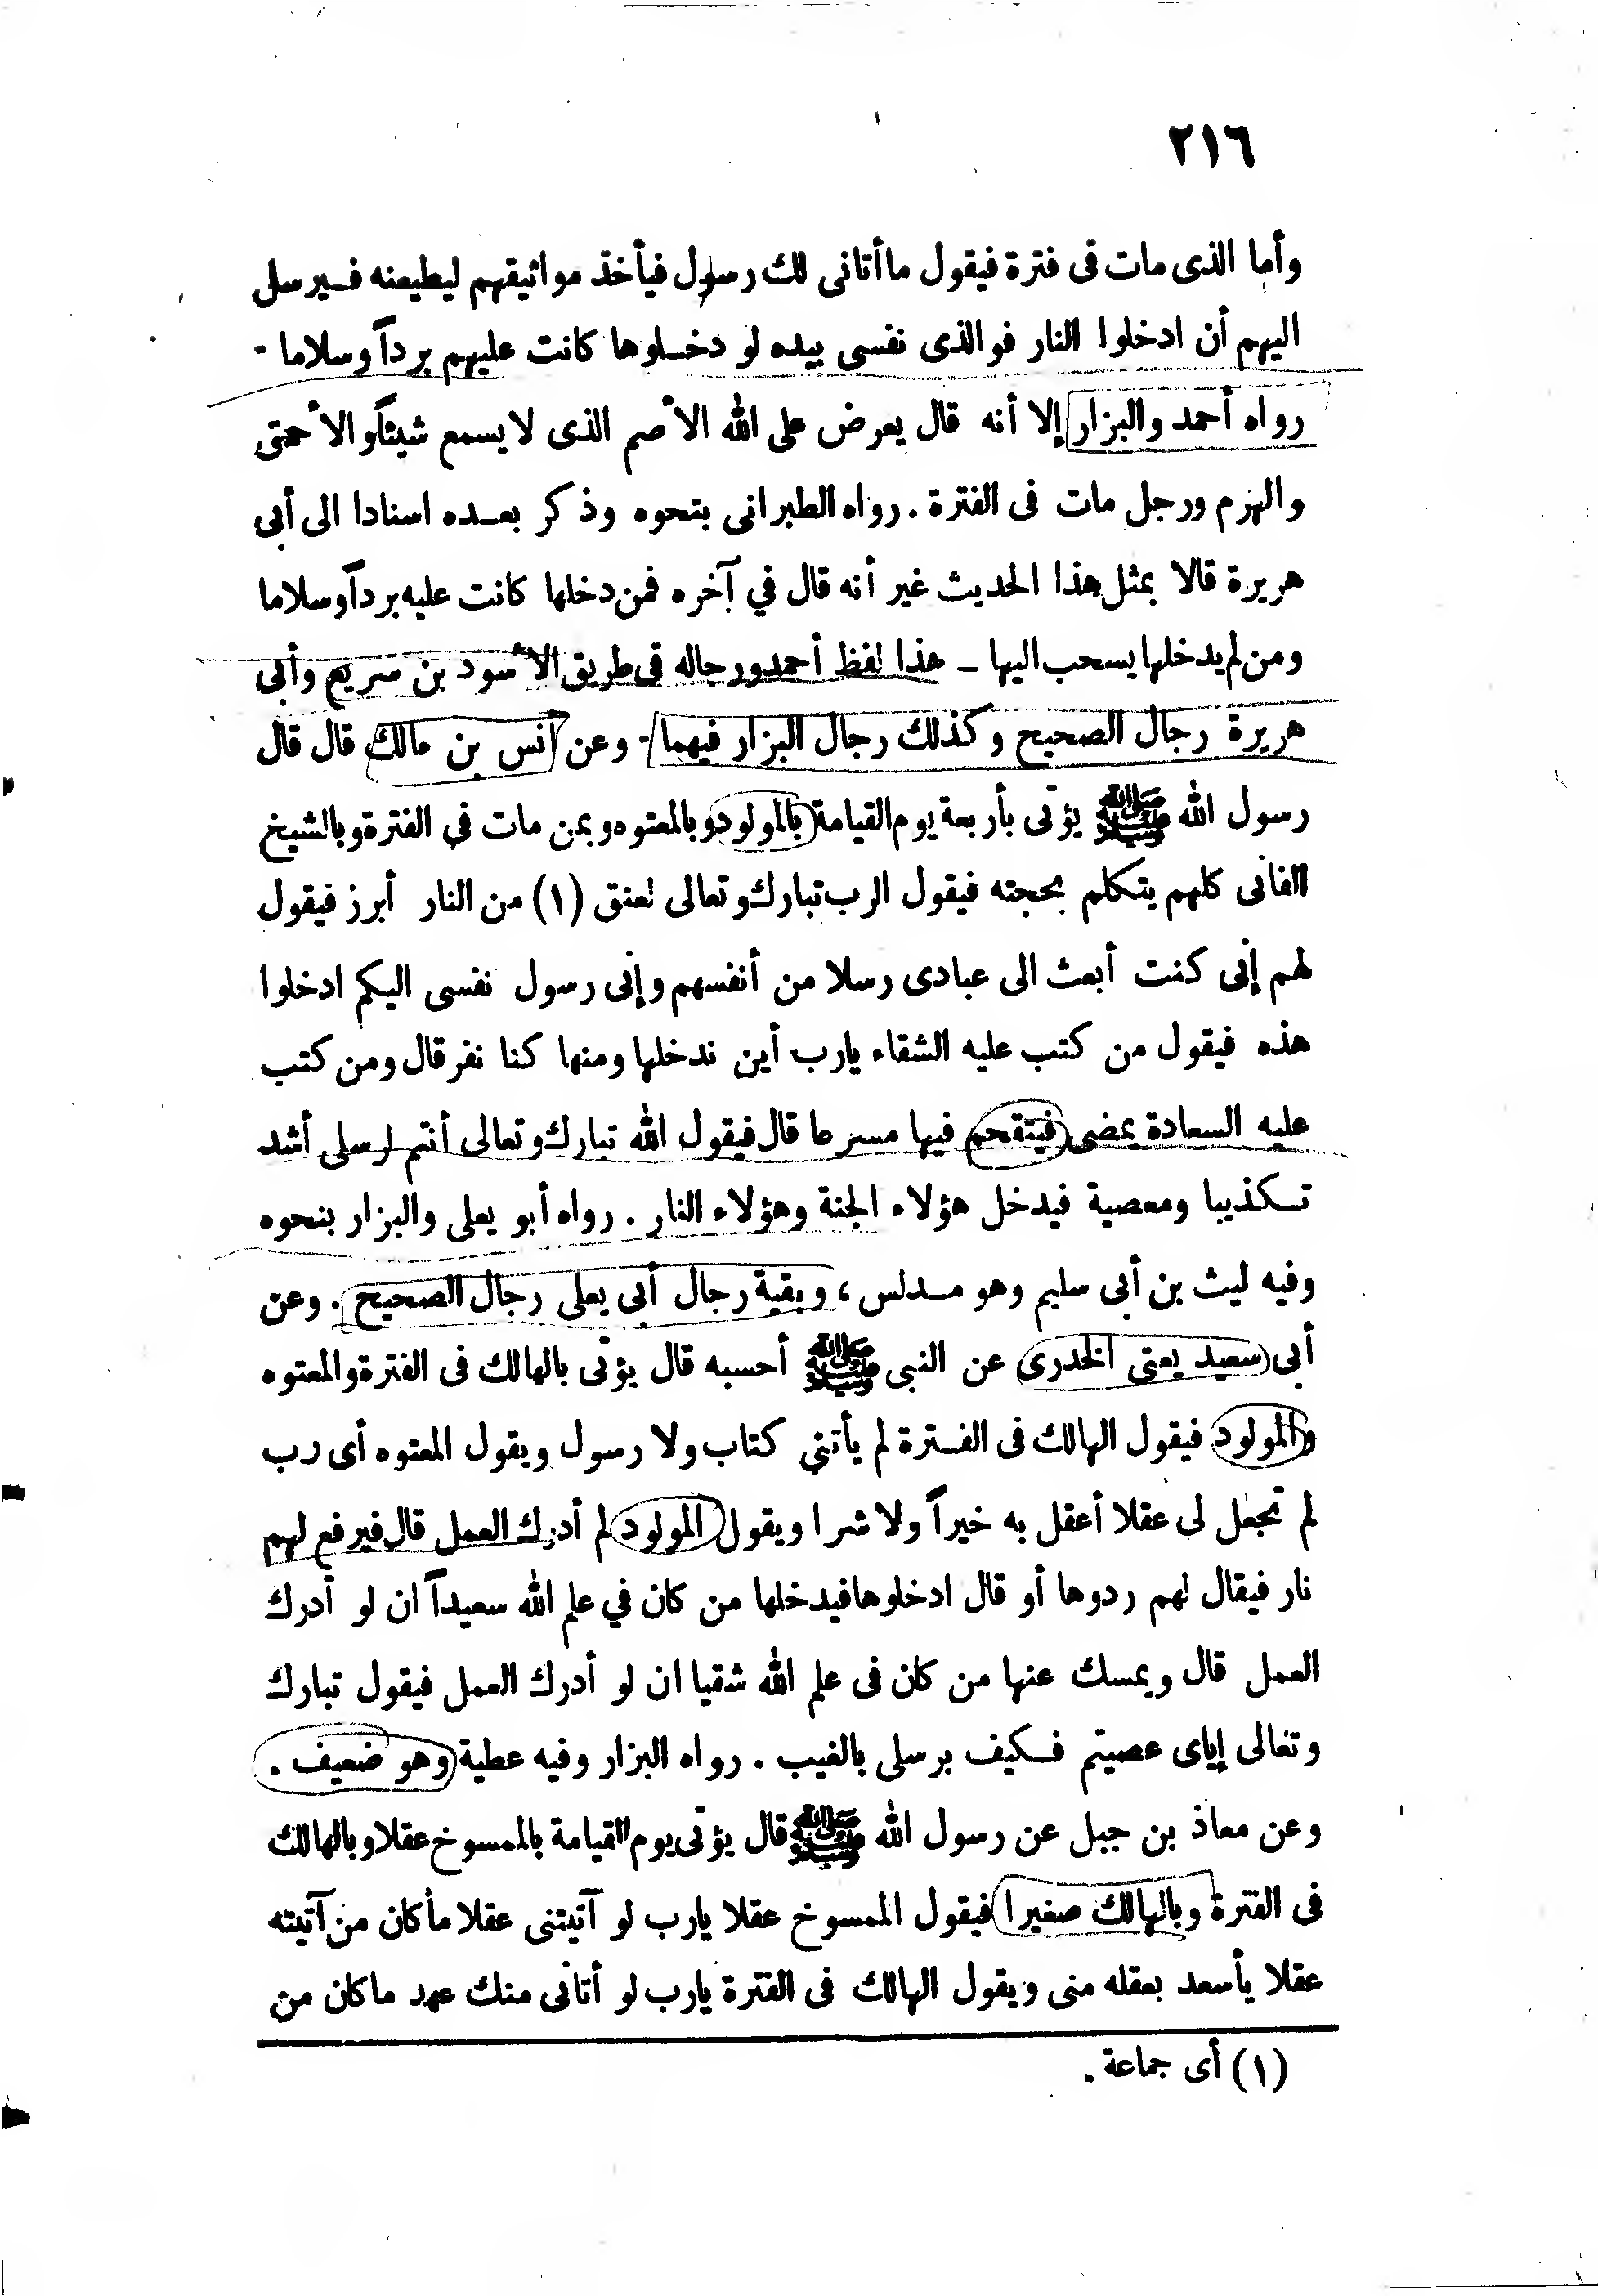 ٢١٦
وأما الذى مات فى فترة فيقول ما أتانى لك رسول فيأخذ مواثيقهم ليطيعنه فـيرسل
اليهم أن ادخلوا النار فوالذى نفسى بيده لو دخـلوها كانت عليهم برداً وسلاما -
رواه أحمد والبزار إلا أنه قال يعرض على الله الأصم الذى لا يسمع شيئاً والأحمق
والهرم ورجل مات فى الفترة . رواه الطبرانى بنحوه وذكر بعـده اسنادا الى أبى
هريرة قالا بمثل هذا الحديث غير أنه قال في آخره فمن دخلها كانت عليه برداً وسلاما
ومن لم يدخلها يسحب اليها ـ هذا لفظ أحمد ورجاله فى طريق الأسود بن سريع وأبى
هريرة رجال الصحيح وكذلك رجال البزار فيهما . وعن أنس بن مالك قال قال
رسول الله ﷺ يؤتى بأربعة يوم القيامة بالمولود وبالمعتوه وبمن مات في الفترة وبالشيخ
الفانى كلهم يتكلم بحجته فيقول الرب تبارك وتعالى لعنق (١) من النار أبرز فيقول
لهم إنى كنت أبعث الى عبادى رسلا من أنفسهم وإنى رسول نفسى اليكم ادخلوا
هذه فيقول من كتب عليه الشقاء يارب أين ندخلها ومنها كنا نفر قال ومن كتب
عليه السعادة يمضى فيتقحم فيها مسرعا قال فيقول الله تبارك وتعالى أنتم لرسلى أشد
تـكذيبا ومعصية فيدخل هؤلاء الجنة وهؤلاء النار . رواه أبو يعلى والبزار بنحوه
وفيه ليث بن أبى سليم وهو مـدلس ، وبقية رجال أبى يعلى رجال الصحيح . وعن
أبى سعيد يعنى الخدرى عن النبى ﷺ أحسبه قال يؤتى بالهالك فى الفترة والمعتوه
والمولود فيقول الهالك فى الفـترة لم يأتني كتاب ولا رسول ويقول المعتوه أى رب
لم تجعل لى عقلا أعقل به خيراً ولا شرا ويقول المولود لم أدرك العمل قال فيرفع لهم
نار فيقال لهم ردوها أو قال ادخلوها فيدخلها من كان في علم الله سعيداً ان لو أدرك
العمل قال ويمسك عنها من كان فى علم الله شقيا ان لو أدرك العمل فيقول تبارك
وتعالى إياى عصيتم فـكيف برسلى بالغيب . رواه البزار وفيه عطية وهو ضعيف .
وعن معاذ بن جبل عن رسول الله ﷺ قال يؤتى يوم القيامة بالممسوخ عقلا وبالهالك
فى الفترة وبالهالك صغيرا فيقول الممسوخ عقلا يارب لو آتيتنى عقلا ما كان من آتيته
عقلا يأسعد بعقله منى ويقول الهالك فى الفترة يارب لو أتانى منك عهد ما كان من
(١) أى جماعة .